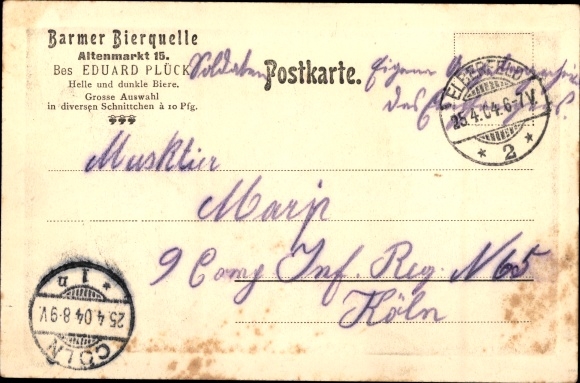 Barmer Bierquelle
Altenmarkt 15.
Bes EDUARD PLÜCK
Helle und dunkle Biere.
Grosse Auswahl
in diversen Schnittchen à 10 Pfg.
Soldaten
Postkarte.
Eigene Angelegenheit
des Empfängers.
ELBERFELD
25.4.04.6-7V.
* 2 *
Musktier
9 Comp Inf. Reg. N 65
Köln
CÖLN
25.4.04 8-9V.
* 1 u